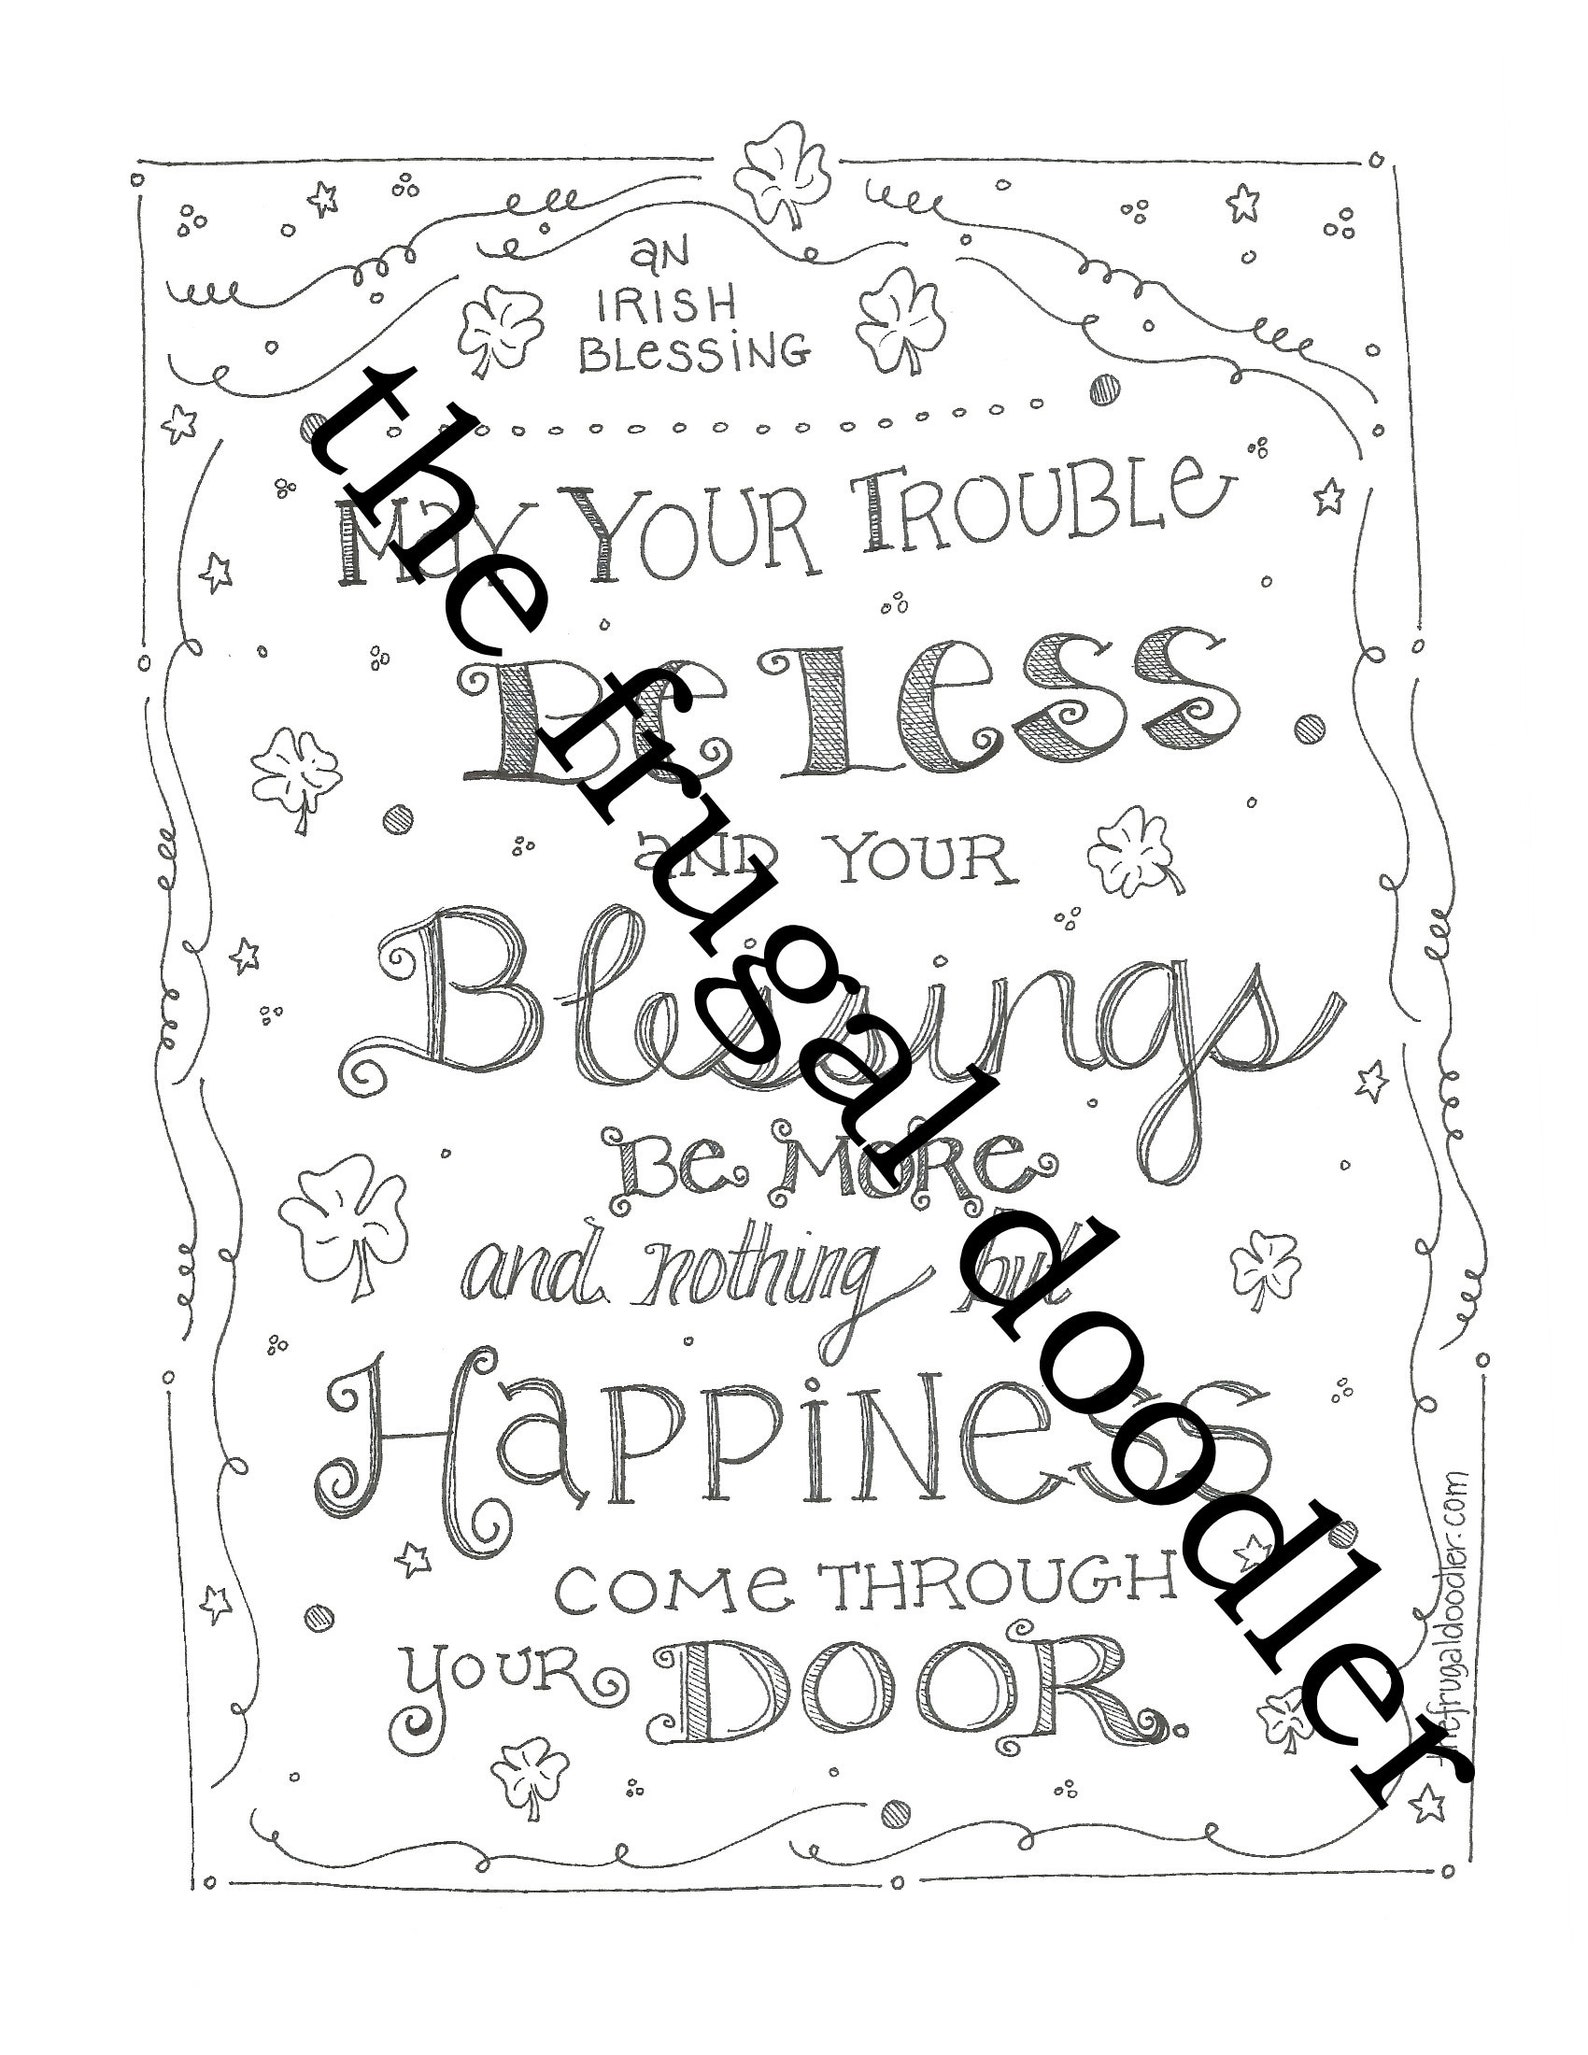 aN
IRISH
BLeSSiNG
May YOUR TROUBLe
Be Less
aND YOUR
Blessings
Be MORe
and nothing but
HaPPiNess
COMe THROUGH
YOUR DOOR.
the frugal doodler
thefrugaldoodler.com